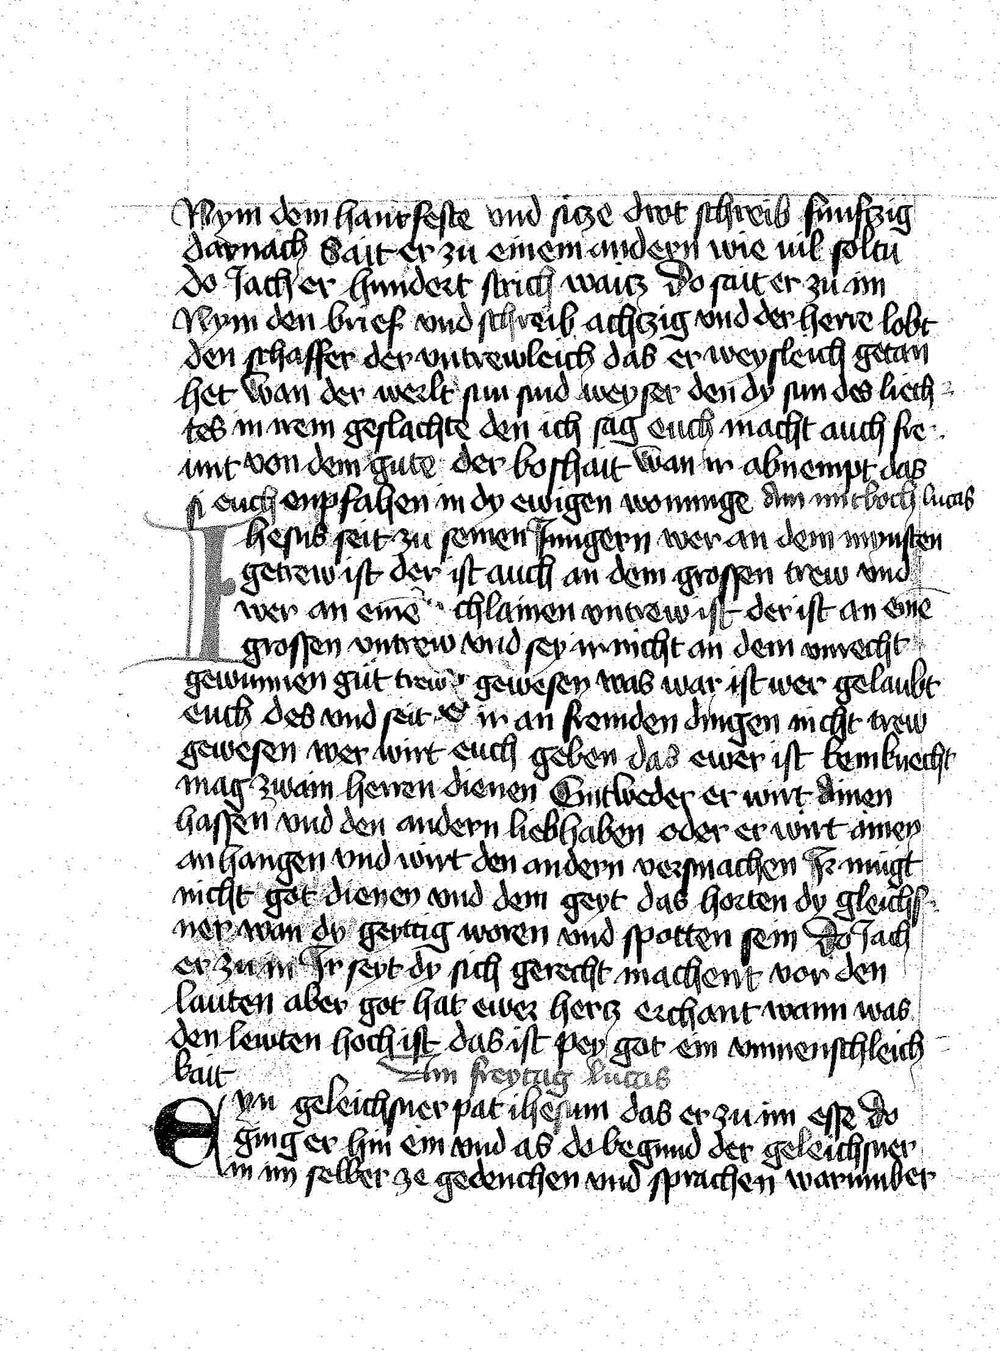 Nym dein hantfeste und sitze drot schreib funfczig
darnach Sait er zu einem andern wie vil soltu
do Jach er hundert strich waitz Do sait er zu im
Nym den brief und schreib achtzig und der herre lobt
den schaffer der untrewleich das er weysleich getan
het Wan der werlt sun sind weyser den dy sun des liech
tes in irem geslachte den ich sag euch macht auch fre
unt von dem gute der boshait Wan ir abnempt das
si euch enpfahen in dy ewigen wonunge Am mitboch lucas
Ihesus seit zu seinen Jungern wer an dem mynsten
getrew ist der ist auch an dem grossen trew und
wer an eine͞ chlainen untrew ist der ist an eine͞
grossen untrew und sey ir nicht an dem unrecht
gewunnen gut trew gewesen was war ist wer gelaubt
euch des und seit ir an fremden dingen nicht trew
gewesen wer wirt euch geben das ewer ist kein knecht
mag zwain herren dienen Eintweder er wirt ainen
hassen und den andern liebhaben oder er wirt ainen
anhangen und wirt den andern versmachen Ir mugt
nicht got dienen und dem geyt das horten dy gleichs
ner wan dy geyttig woren und spotten sein Do Jach
er zu in Ir seyt dy sich gerecht machent vor den
lauten aber got hat ewer hertz erchant wann was
den lewten hoch ist das ist pey got ein unmenschleich
kait Am freytag lucas
Eyn geleichsner pat ihesum das er zu im esse do
ging er hin ein und as do begund der geleichsner
in im selber ze gedenchen und sprachen warumber